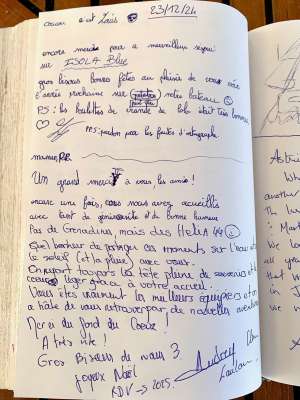 coucou c'est Laïs
23/12/24
encore merci pour ce merveilleux séjour
sur ISOLA Blue
gros bisous bonnes fêtes au plaisir de vous voir
l'année prochaine sur notre bateau
PS: les boulettes de viande de lolo était très bonnes
PPS: pardon pour les fautes d'orthographe
maman
Un grand merci à vous les amis!
encore une fois, vous nous avez accueillis
avec tant de générosité et de bonne humeur
Pas de Grenadines, mais des Hells
Quel bonheur de partager ces moments sur l'eau
le soleil (et la pluie) avec vous.
On repart toujours la tête pleine de souvenirs et le
coeur léger grâce à votre accueil.
Vous êtes vraiment les meilleurs équipiers et on
a hâte de vous retrouver pour de nouvelles aventures
Merci du fond du Coeur!
A très vite!
Gros Bisous de nous 3.
Joyeux Noël
RDV → 2025
Audrey
Astr
Wh
Th
Mar
We
all
gra
that
in
we